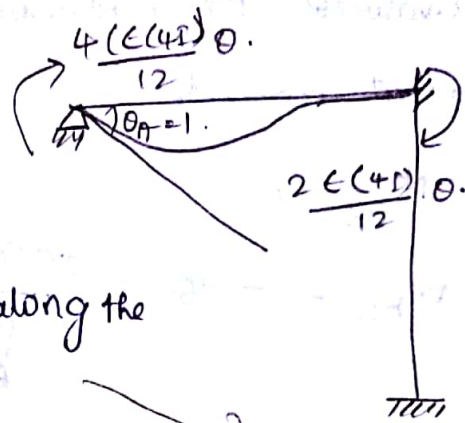 4 (E(4I)) θ.
12
θA = 1.
2 E(4I) θ.
12
along the